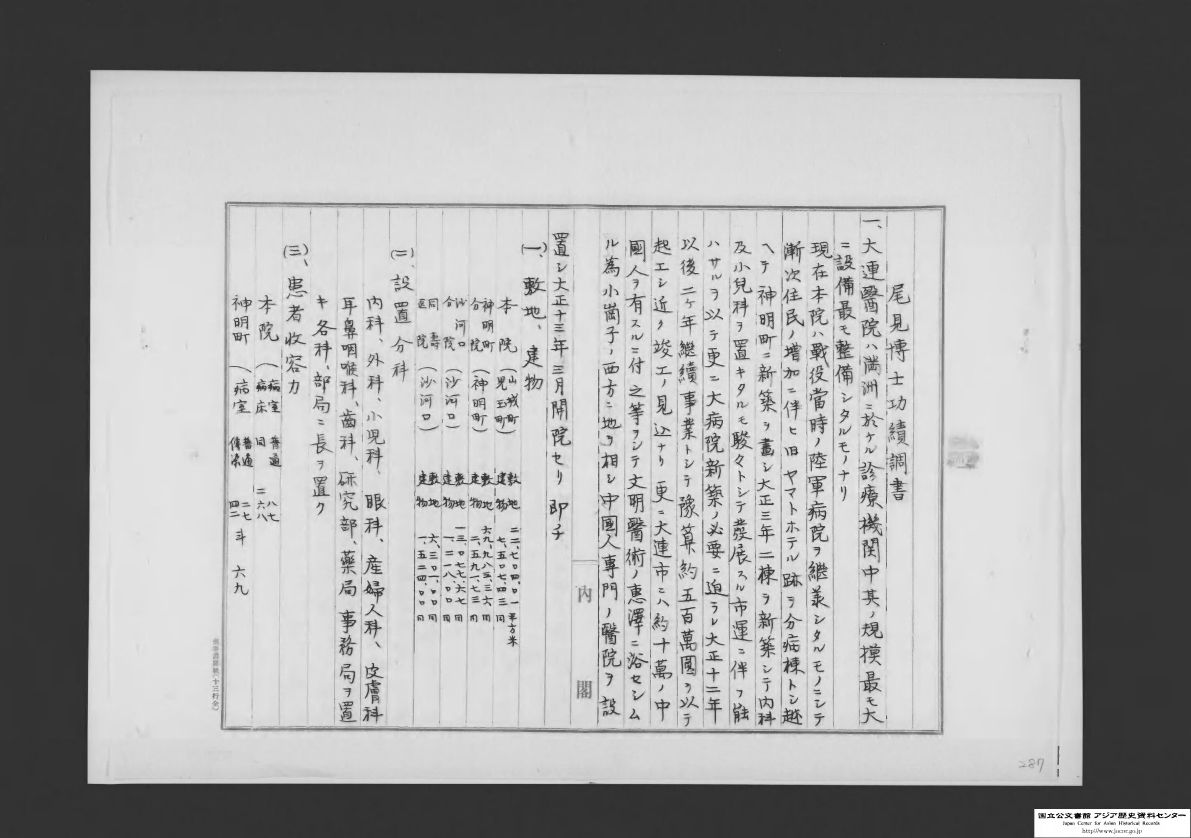 尾見博士功績調書
一、大連醫院ハ満洲ニ於ケル診療機関中其ノ規模最モ大
ニ設備最モ整備シタルモノナリ
現在本院ハ戰役當時ノ陸軍病院ヲ継羕シタルモノニシテ
漸次住民ノ増加ニ伴ヒ旧ヤマトホテル跡ヲ分病棟トシ越
ヘテ神明町ニ新築ヲ畫シ大正三年二棟ヲ新築シテ内科
及小児科ヲ置キタルモ駿々トシテ發展スル市運ニ伴フ能
ハサルヲ以テ更ニ大病院新築ノ必要ニ迫ラレ大正十二年
以後二ケ年継續事業トシテ豫算約五百萬圓ヲ以テ
起工シ近ク竣工ノ見込ナリ更ニ大連市ニハ約十萬ノ中
國人ヲ有スルニ付之等ヲシテ文明醫術ノ惠澤ニ浴セシム
ル為小崗子ノ西方ニ地ヲ相シ中國人専門ノ醫院ヲ設
内閣
置シ大正十三年三月開院セリ即チ
(一)、敷地、建物
本院(山城町児玉町) 敷地 二二、七〇四、〇一平方米 建物 七、五〇七、四三同
神明町分院(神明町) 敷地 六九、九八三、三六同 建物 二、五九一、七三同
沙河口分院(沙河口) 敷地 一三、〇七七、六七同 建物 一、二一八、〇〇同
同壽医院(沙河口) 敷地 六、三〇一、〇〇同 建物 一、五二四、〇〇同
(二)、設置分科
内科、外科、小児科、眼科、産婦人科、皮膚科
耳鼻咽喉科、齒科、研究部、薬局事務局ヲ置
キ各科、部局ニ長ヲ置ク
(三)、患者收容力
本院(病室 普通 八七 病床 同 二六八
神明町(病室 普通 二七 傳染 四二 計 六九
287
国立公文書館 アジア歴史資料センター
Japan Center for Asian Historical Records
http://www.jacar.go.jp